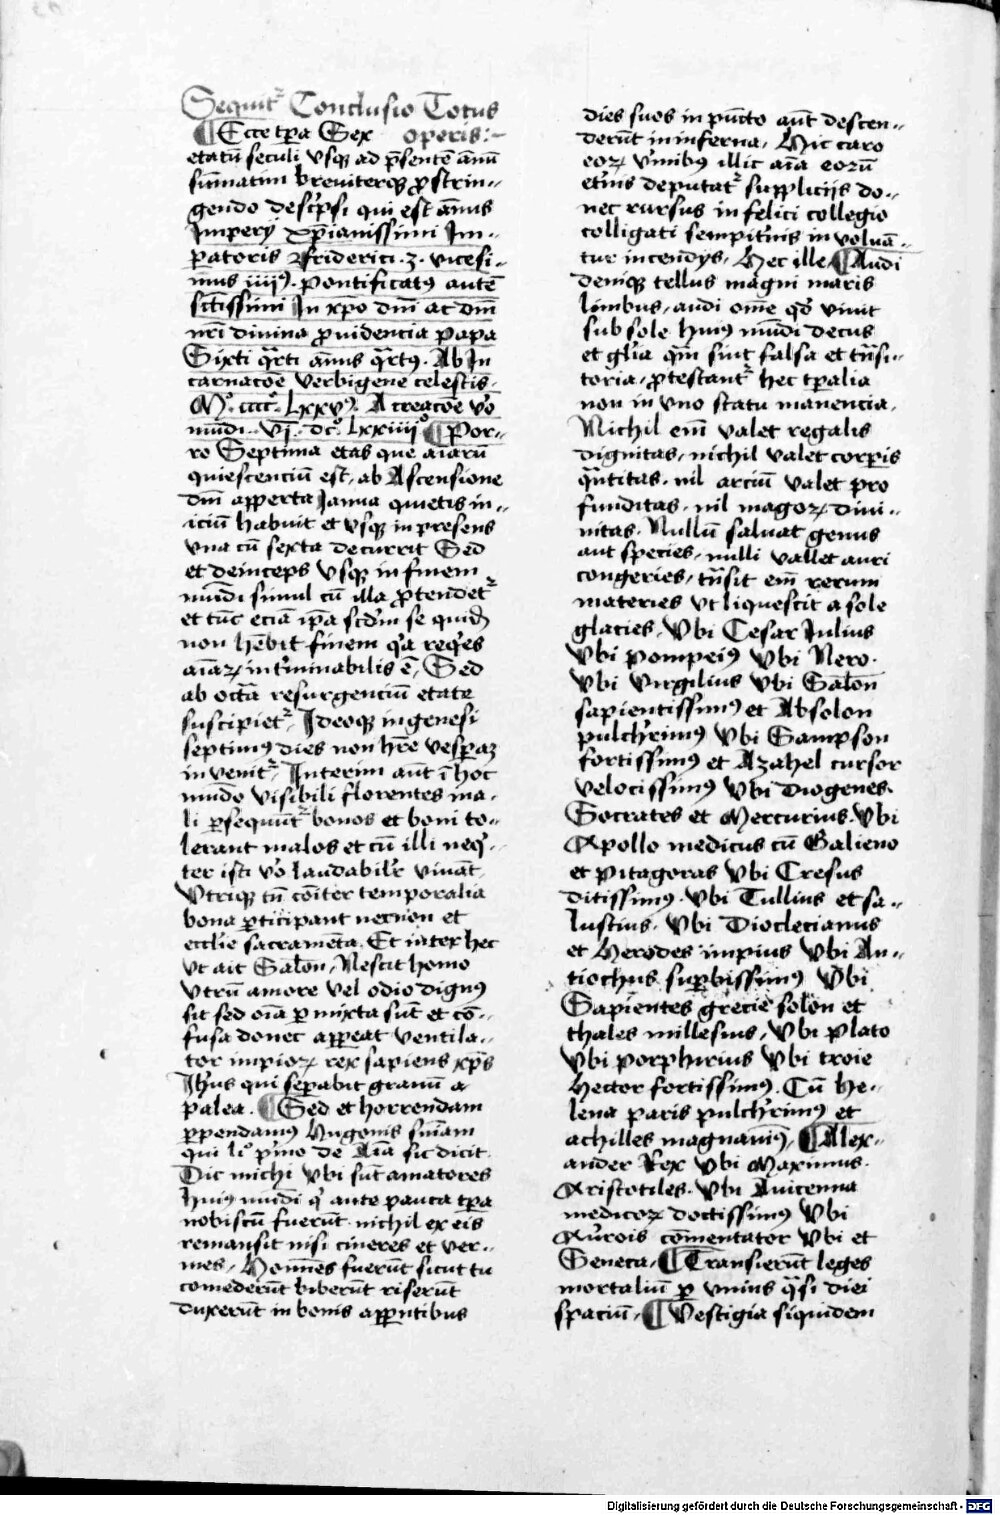 Sequit᷑ Conclusio Totus
¶ Ecce tꝑa Sex operis:~
etatū seculi vsqꝫ ad p̄sentē ānū
sūmatim breuiterqꝫ ꝓstrin-
gendo desc̄psi qui est ānus
Impery xp̄ianissimi Im-
ꝑatoris ffriderici .3. vicesi-
mus iiijꝰ. pontificatꝰ autē
sc̄tissimi In xp̄o dn̄i ac dn̄i
nr̄i diuina ꝓuidencia papa
Sixti q̄rti ānus q̄rtꝰ. Ab In
carnacōe verbigene celestis.
Mº. ccccº. Lxxvꝰ. A creacōe v̊o
mūdi. vj. dcº. Lxxiiijº ¶ Por-
ro Septima etas que aīarū
quiescenciū est, ab Ascensione
dn̄i apperta Janua quietis in-
iciū habuit et vsqꝫ in presens
vna cū sexta decurrit Sed
et deinceps vsqꝫ in finem
mūdi simul cū illa ꝓtendet᷑
et tūc eciā ip̄a scd̄m se quid̄
non hēbit finem q̄a req̄es
aīaꝝ int̄minabilis ē, Sed
ab octā resurgenciū etate
suscipiet᷑, Ideoqꝫ in genesi
septimꝰ dies non hr̄e vesꝑaꝫ
in venit᷑, Interim aūt ī hoc
mūdo visibili florentes ma-
li ꝑsequūt᷑ bonos et boni to-
lerant malos et cū illi neq̄-
ter isti v̊o laudabilr̄ viuāt
Vtriqꝫ tn̄ cōiter temporalia
bona ꝑticipant necnon et
ecclīe sacramēta, Et inter hec
vt ait Salōn, Nescit homo
vtrū amore vel odio dignꝰ
sit sed oīa ꝑ mixta sūt et cō-
fusa donec appeat ventila-
tor impioꝝ rex sapiens xp̄s
Jhūs qui seꝑabit granū a
palea. ¶ Sed et horrendam
ꝑpendamꝰ Hugonis sn̄iam
qui liº p̄mo de Aīa sic dicit
Dic michi vbi sūt amatores
huiꝰ mūdi q̄ ante pauca tꝑa
nobiscū fuerūt nichil ex eis
remansit nisi cineres et ver-
mes, Hom̄es fuerūt sicut tu
comederūt biberūt riserūt
duxerūt in bonis apꝑntibus
dies suos in pūcto aūt descen-
derūt in inferna, Hic caro
eoꝝ v̄mibꝰ illic aīa eorū
et̄nis deputat᷑ suppliciis do-
nec rursus in felici collegio
colligati sempit̄nis in voluā-
tur incendys, Hec ille ¶ Audi
deniqꝫ tellus magni maris
limbus, audi om̄e qd̄ viuit
sub sole huiꝰ mūdi decus
et gl̄ia q̄m sint falsa et tn̄si-
toria, ꝓtestant᷑ hec tꝑalia
non in vno statu manencia,
Nichil em̄ valet regalis
dignitas, nichil valet corꝑis
q̄ntitas, nil arciū valet pro
funditas, nil magoꝝ diui-
nitas. Nullū saluat genus
aut species, nulli vallet auri
congeries, tn̄sit em̄ rerum
materies vt liquescit a sole
glacies, Vbi Cesar Julius
Vbi pompeiꝰ Vbi Nero.
Vbi virgilius Vbi Salōn
sapientissimꝰ et Absolon
pulch̄rimꝰ Vbi Sampson
fortissimꝰ et Azahel cursor
velocissimꝰ Vbi Diogenes.
Socrates et Mercurius. Vbi
Apollo medicus cū Galieno
et pitagoras Vbi Cresus
ditissimꝰ. Vbi Tullius et sa-
lustius, Vbi Dioclecianus
et Herodes impius Vbi An-
tiochus suꝑbissimꝰ Vbi
Sapientes grecie solon et
thales millesius, Vbi plato
Vbi porphirius Vbi troie
Hector fortissimꝰ. Cū He-
lena paris pulch̄rimꝰ et
achilles magnaūiꝰ, ¶ Alex-
ander Rex Vbi Maximus.
Aristotiles. Vbi Auicenna
medicoꝝ doctissimꝰ Vbi
Au̓rois cōmentator Vbi et
Seneca, ¶ Transierūt leges
mortaliū ꝑ vnius q̄si diei
spaciū, ¶ Vestigia siquidem
Digitalisierung gefördert durch die Deutsche Forschungsgemeinschaft - DFG